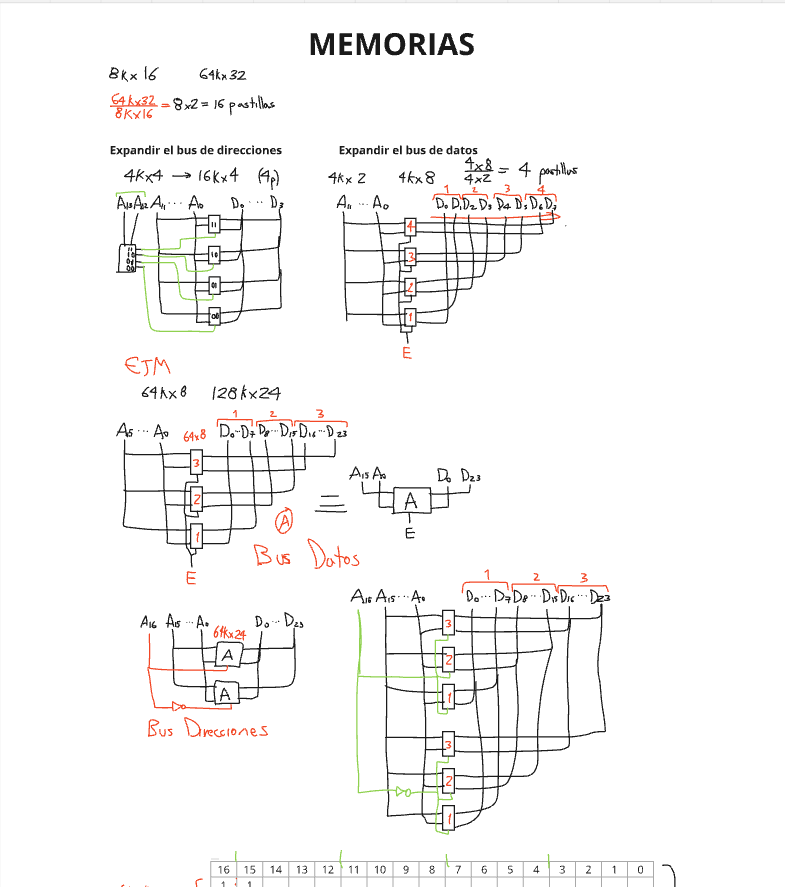 MEMORIAS
8K x 16 64K x 32
64K x 32 / 8K x 16 = 8 x 2 = 16 pastillas
Expandir el bus de direcciones
4K x 4 → 16K x 4 (4p)
A13 A12 A11 ... A0 D0 ... D3
11
10
01
00
11
10
01
00
Expandir el bus de datos
4K x 2 4K x 8 4x8 / 4x2 = 4 pastillas
1 2 3 4
A11 ... A0 D0 D1 D2 D3 D4 D5 D6 D7
4
3
2
1
E
EJM
64K x 8 128K x 24
1 2 3
A15 ... A0 64x8 D0 ... D7 D8 ... D15 D16 ... D23
3
2
1
E
A
Bus Datos
A15 A0 D0 D23
A
E
A16 A15 ... A0 D0 ... D23
64K x 24
A
A
Bus Direcciones
1 2 3
A16 A15 ... A0 D0 ... D7 D8 ... D15 D16 ... D23
3
2
1
3
2
1
16 15 14 13 12 11 10 9 8 7 6 5 4 3 2 1 0
1 1